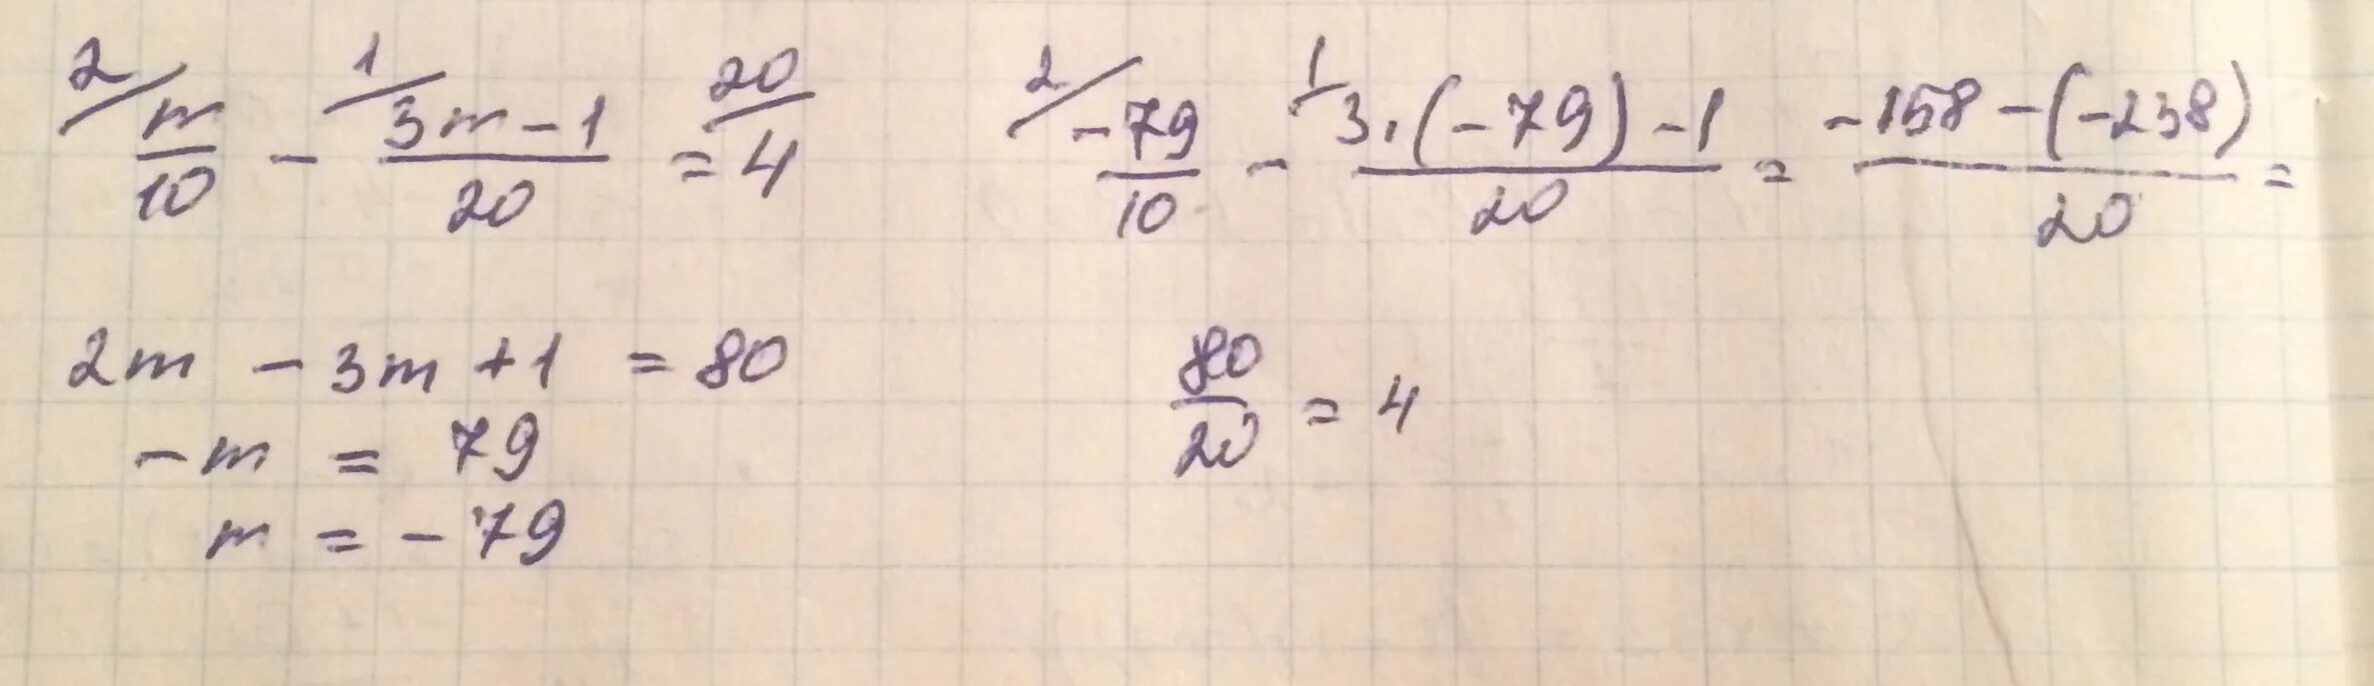 2/ m/10 - 1/ (3m-1)/20 = 20/ 4
2m - 3m + 1 = 80
-m = 79
m = -79
2/ -79/10 - 1/ (3·(-79)-1)/20 = (-158-(-238))/20 =
80/20 = 4